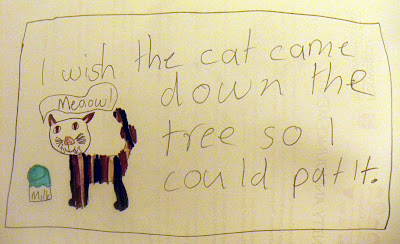 I wish the cat came
down the
Meaow!
tree so I
could pat it.
Milk